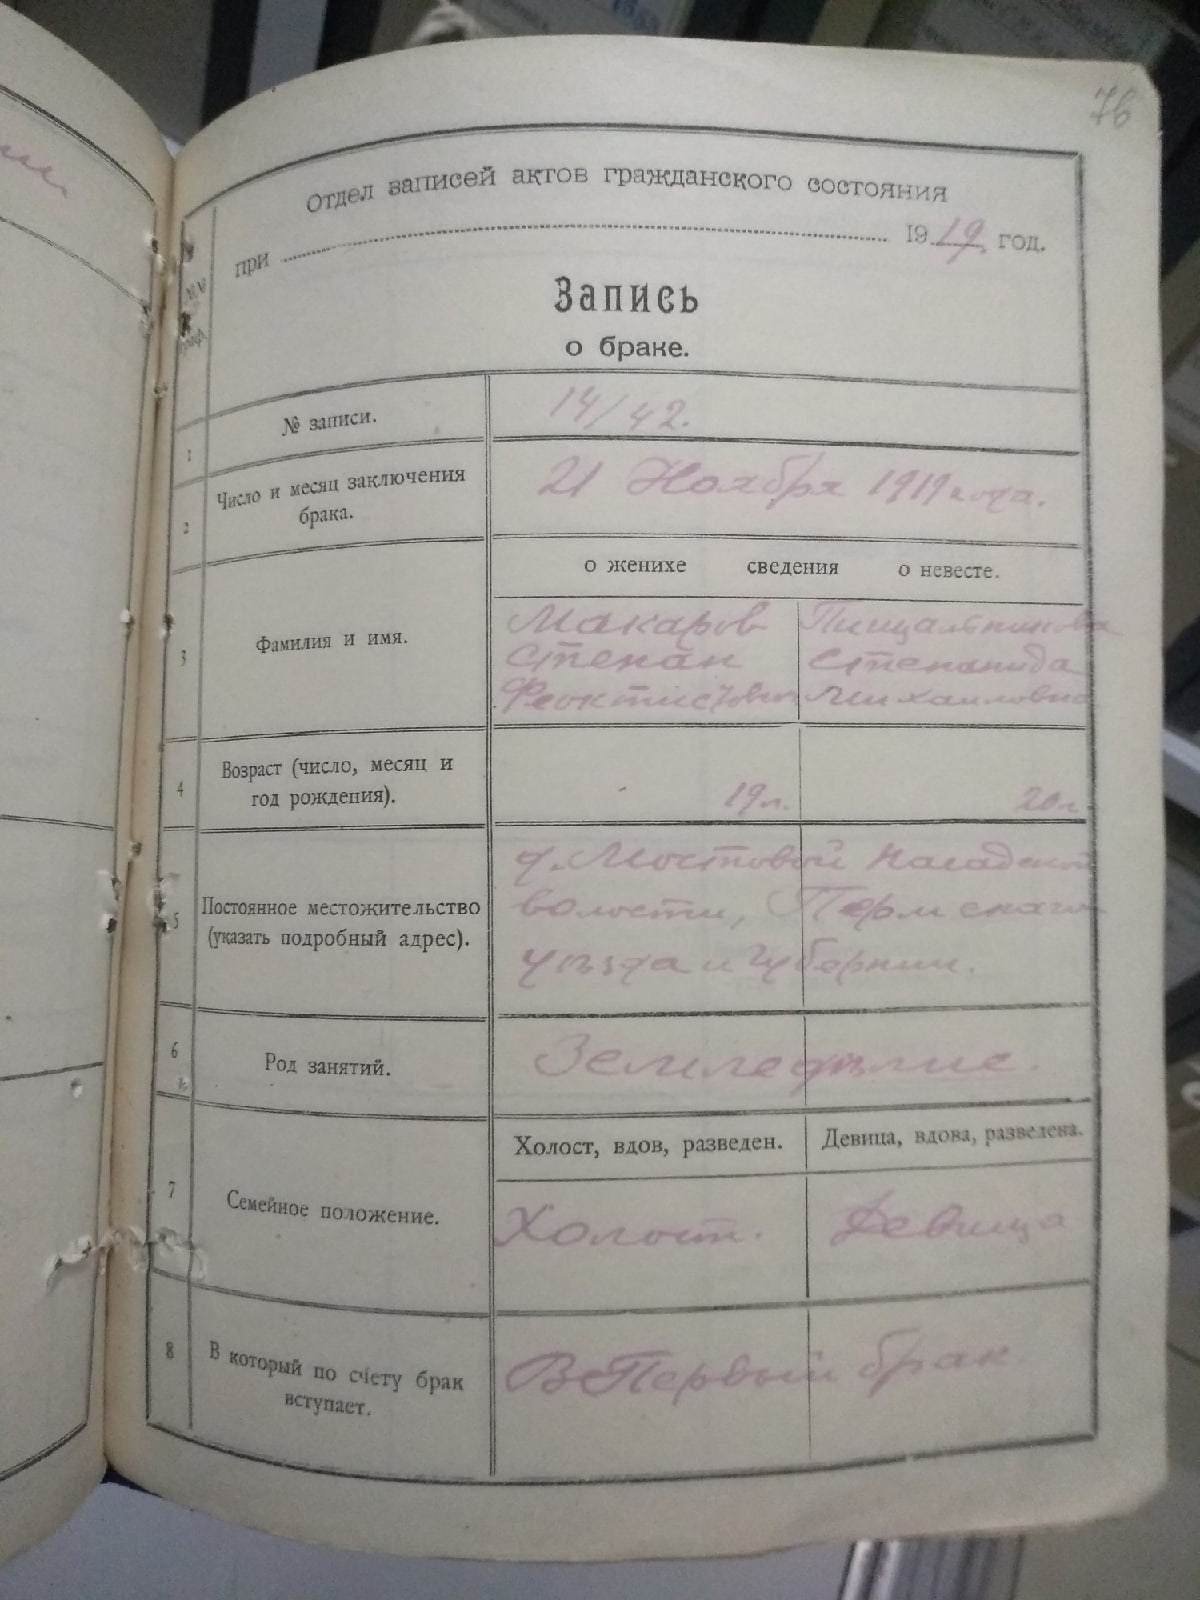 76
Отдел записей актов гражданского состояния
при 1919 год.
№№
граф.
Запись
о браке.
1 № записи. 14/42.
2 Число и месяц заключения брака. 21 Ноября 1919 года.
о женихе сведения о невесте.
3 Фамилия и имя.
Макаров Пищальникова
Степан Степанида
Феоктистович Михаиловна
4 Возраст (число, месяц и год рождения). 19 л. 20 л.
5 Постоянное местожительство (указать подробный адрес).
д. Мостовой
волости, Пермскаго
уѣзда и губернии.
6 Род занятий. Земледѣлие.
Холост, вдов, разведен. Девица, вдова, разведена.
7 Семейное положение. Холост. Девица
8 В который по счету брак вступает. В Первый брак